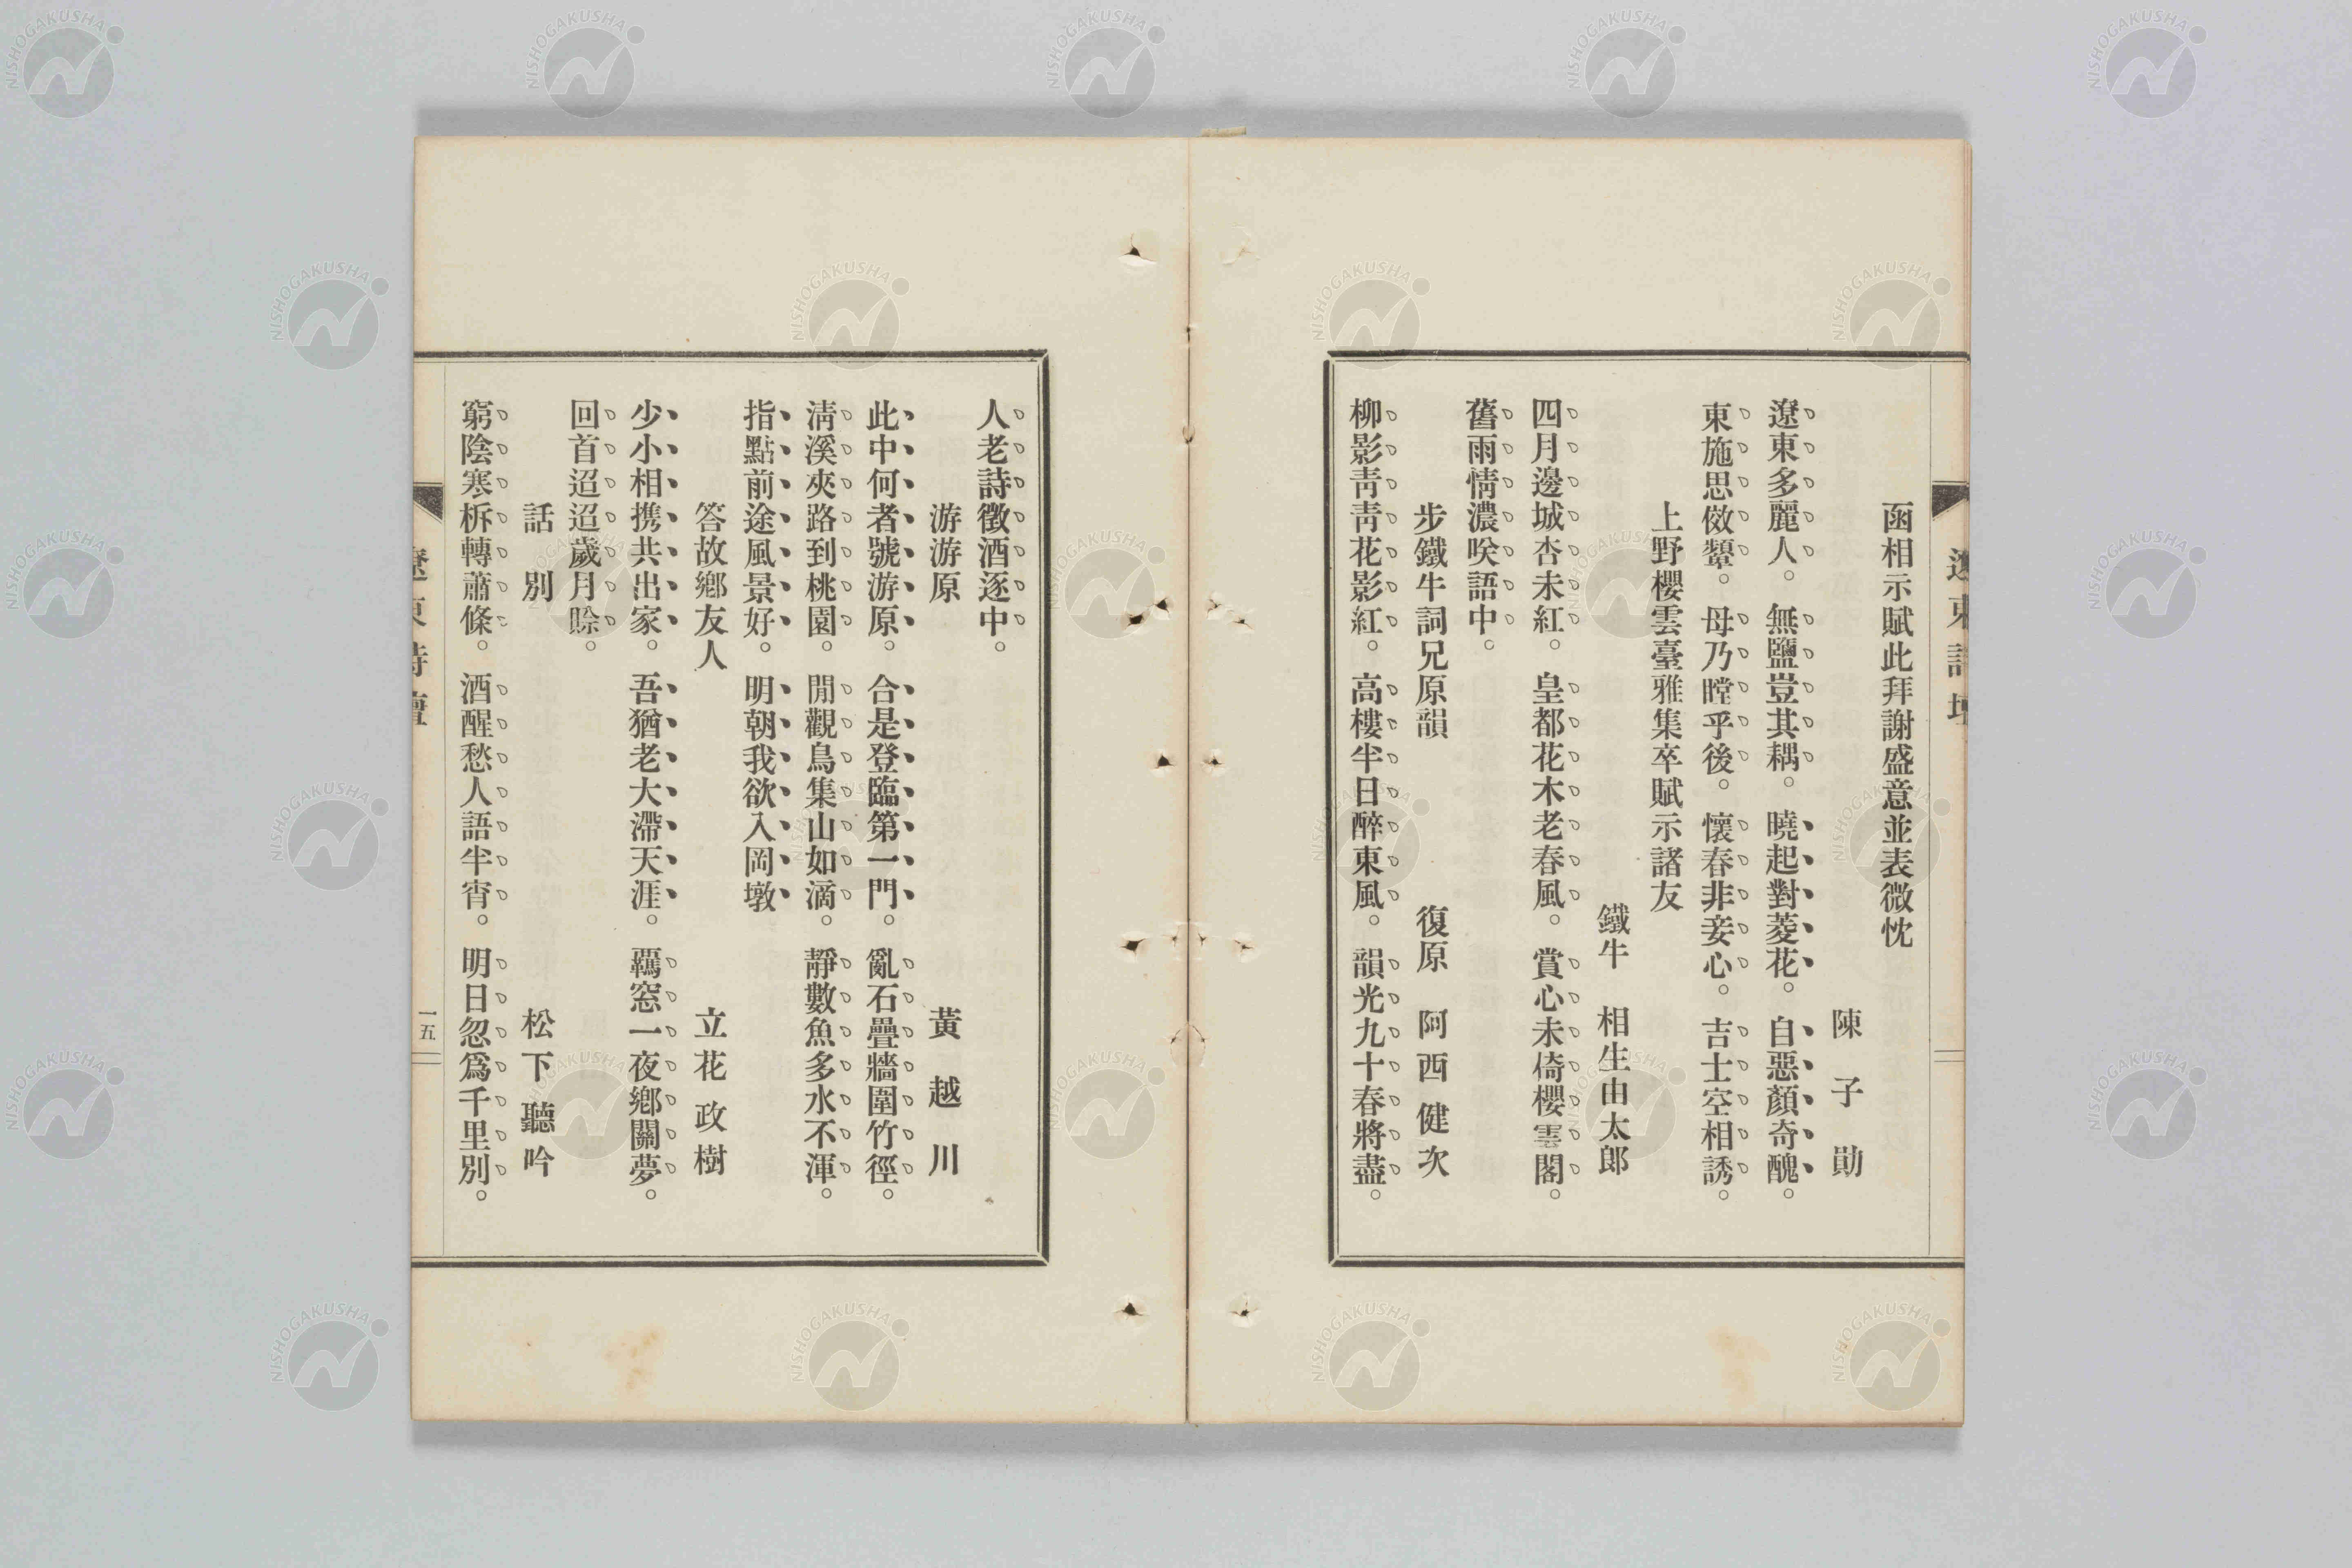 遼東詩壇
函相示賦此拜謝盛意並表微忱
陳子勛
遼東多麗人。無鹽豈其耦。曉起對菱花。自惡顏奇醜。
東施思傚顰。母乃瞠乎後。懷春非妾心。吉士空相誘。
上野櫻雲臺雅集卒賦示諸友
鐵牛 相生由太郎
四月邊城杏未紅。皇都花木老春風。賞心未倚櫻雲閣。
舊雨情濃咲語中。
步鐵牛詞兄原韻 復原 阿西健次
柳影靑靑花影紅。高樓半日醉東風。韻光九十春將盡。
人老詩徵酒逐中。
游游原 黃越川
此中何者號游原。合是登臨第一門。亂石疊牆圍竹徑。
淸溪夾路到桃園。閒觀鳥集山如滴。靜數魚多水不渾。
指點前途風景好。明朝我欲入岡墩
答故鄕友人 立花政樹
少小相携共出家。吾猶老大滯天涯。羈窓一夜鄕關夢。
回首迢迢歲月賒。
話別 松下聽吟
窮陰寒柝轉蕭條。酒醒愁人語半宵。明日忽爲千里別。
遼東詩壇
一五
NISHOGAKUSHA